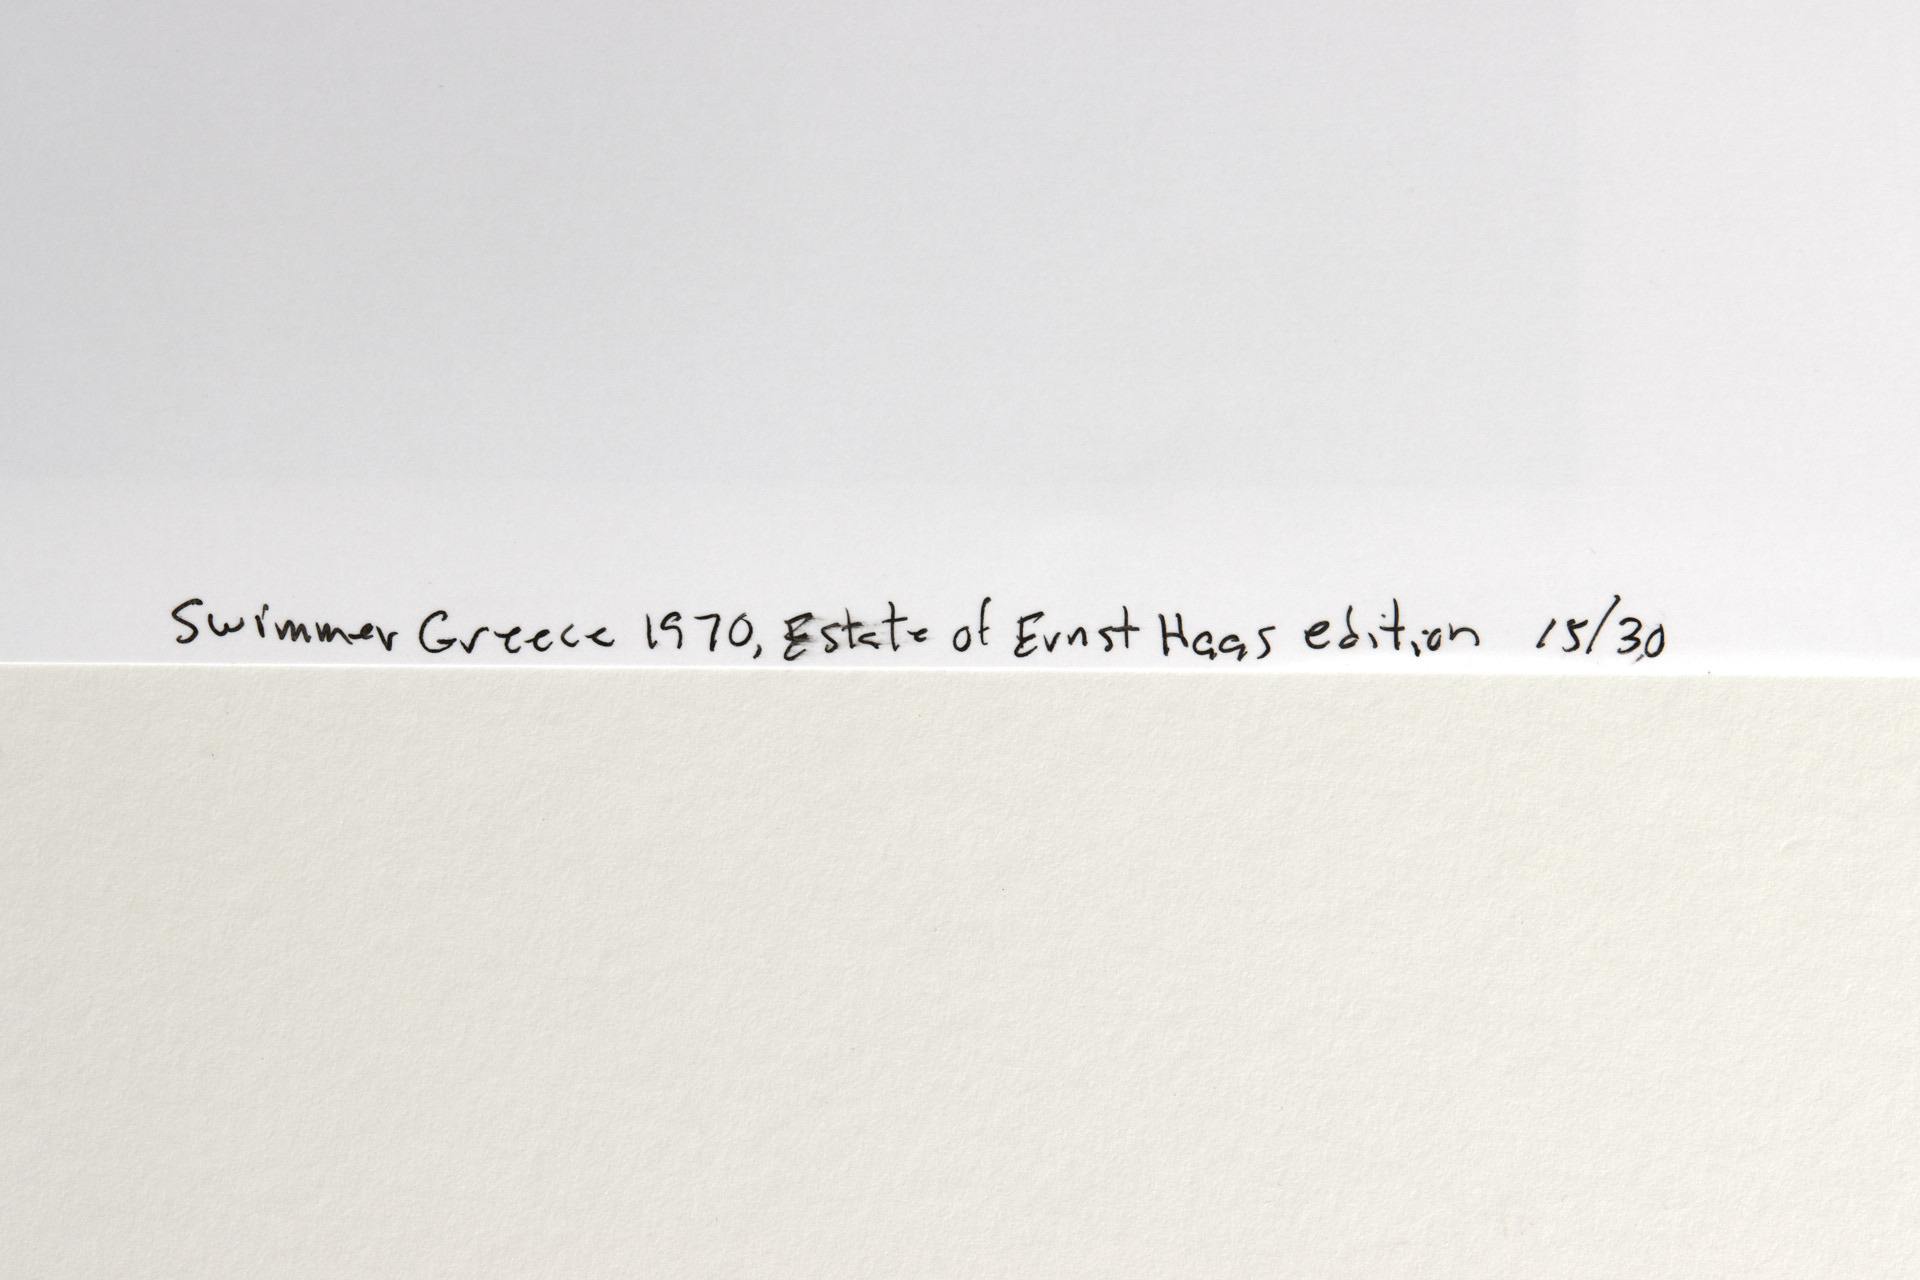 Swimmer Greece 1970, Estate of Ernst Haas edition 15/30